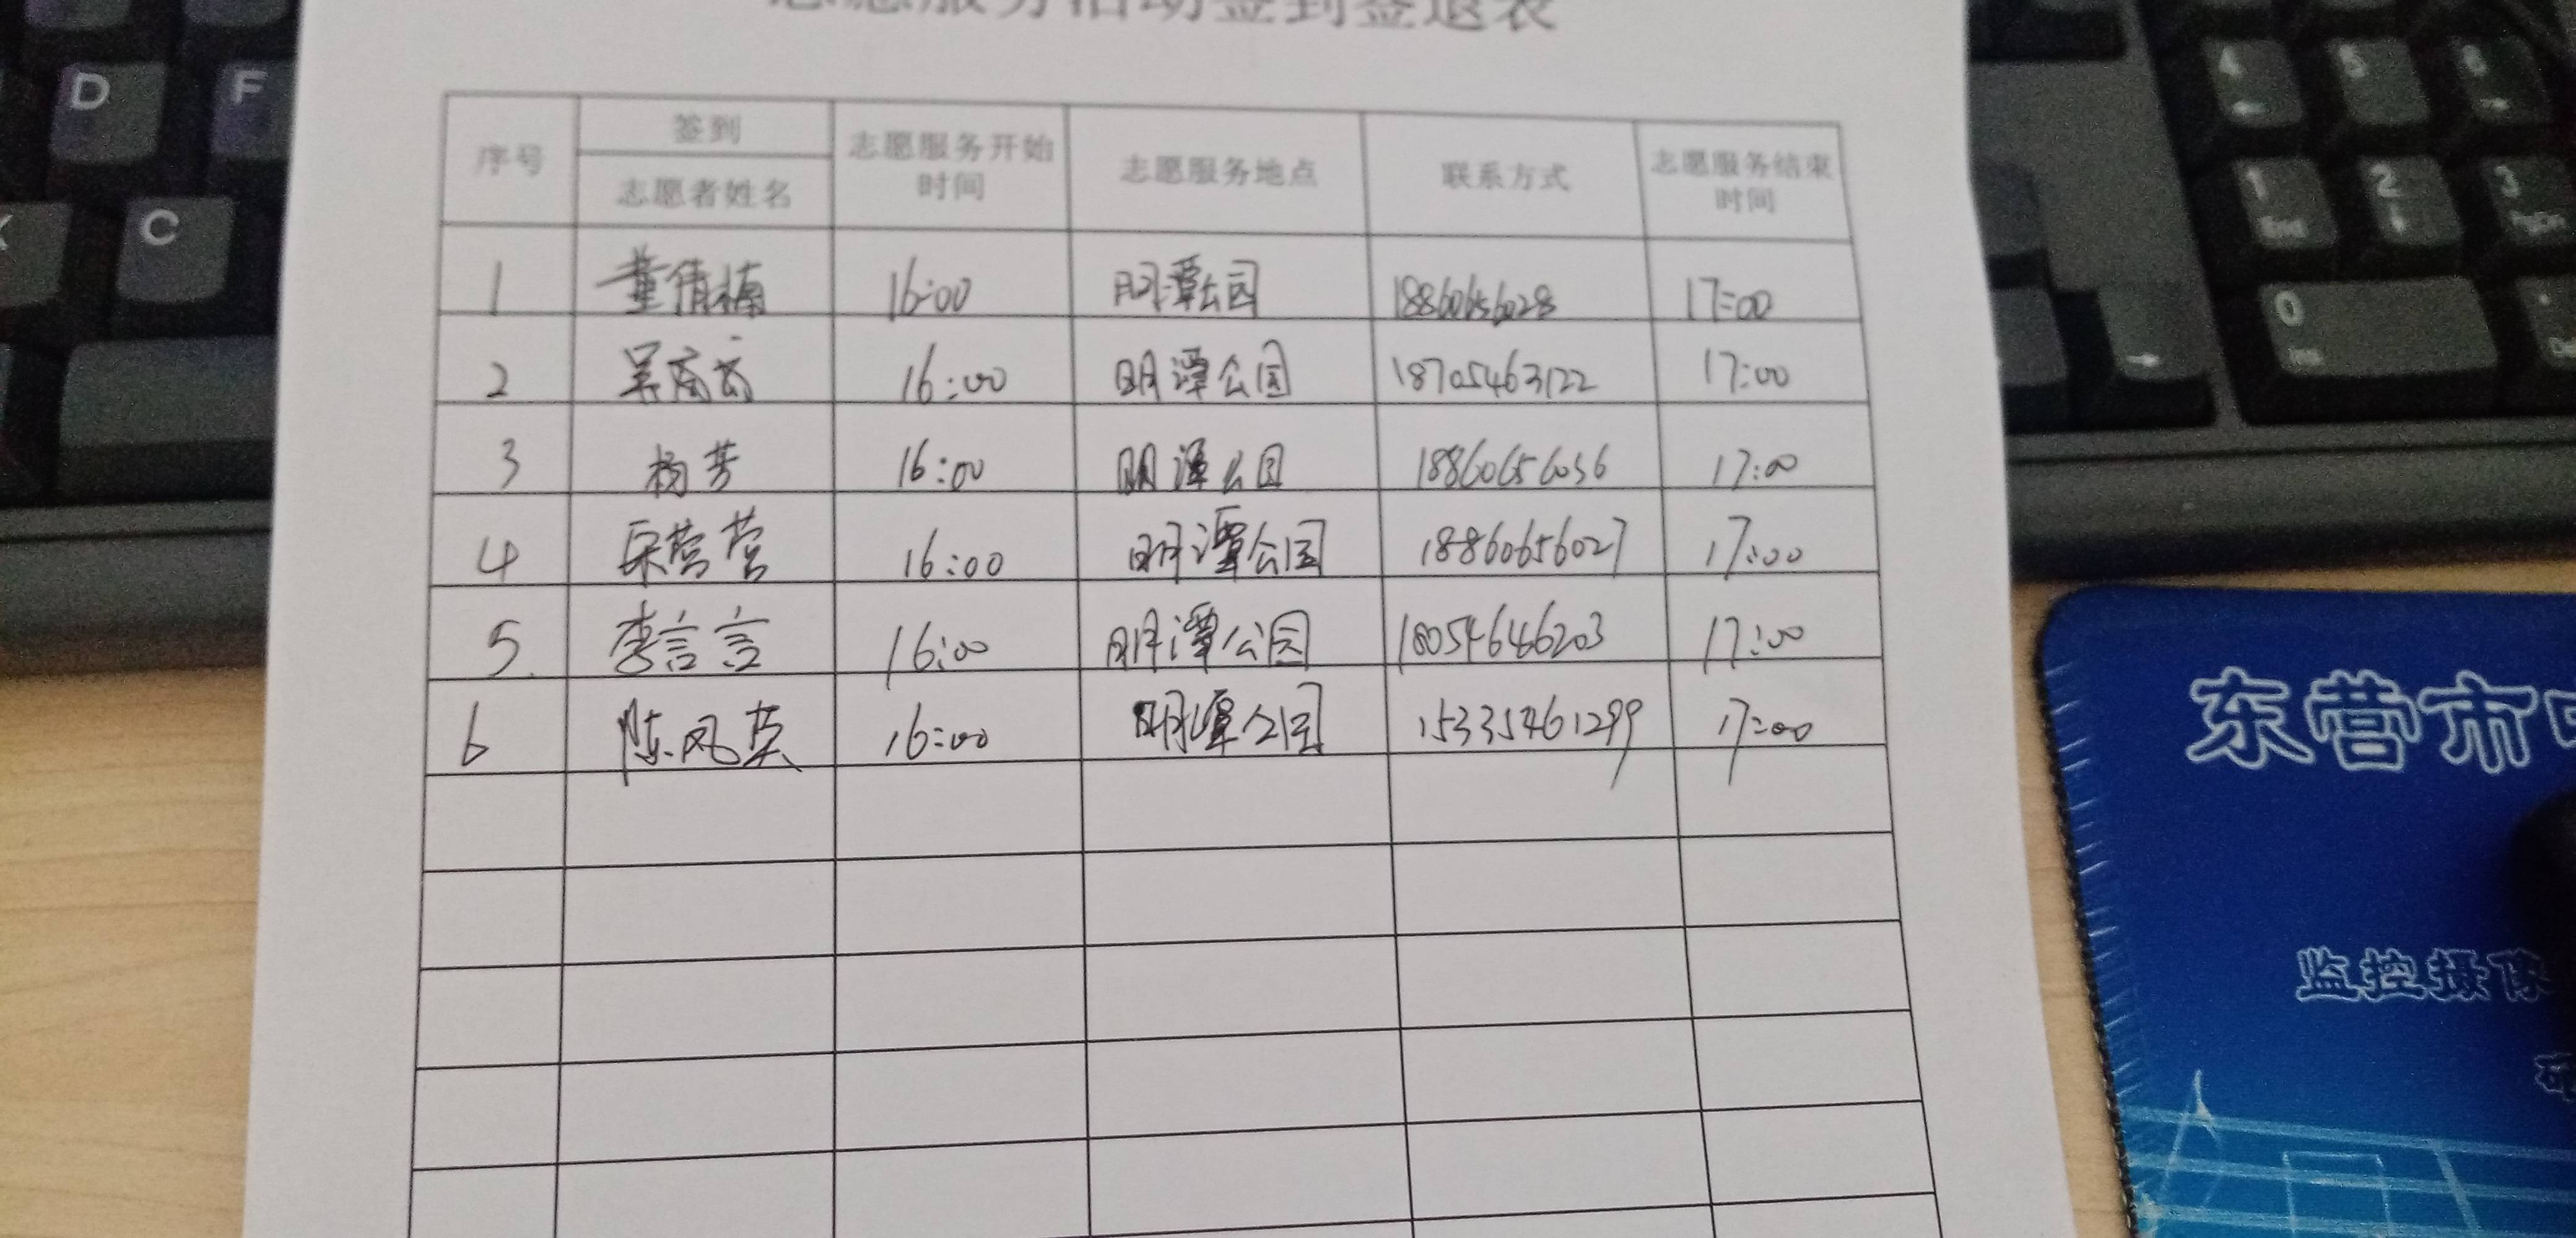 志愿服务活动签到签退表
序号 签到 志愿服务开始时间 志愿服务地点 联系方式 志愿服务结束时间
志愿者姓名
1 董倩楠 16:00 明潭公园 18860656028 17:00
2 16:00 明潭公园 18705463122 17:00
3 杨芳 16:00 明潭公园 18860656036 17:00
4 宋营营 16:00 明潭公园 18860656027 17:00
5. 李言言 16:00 明潭公园 18054646203 17:00
6 陈凤英 16:00 明潭公园 15335461299 17:00
东营市
监控摄像
D F
C
4 5 6
1 2 3
End PgDn
0
Ins